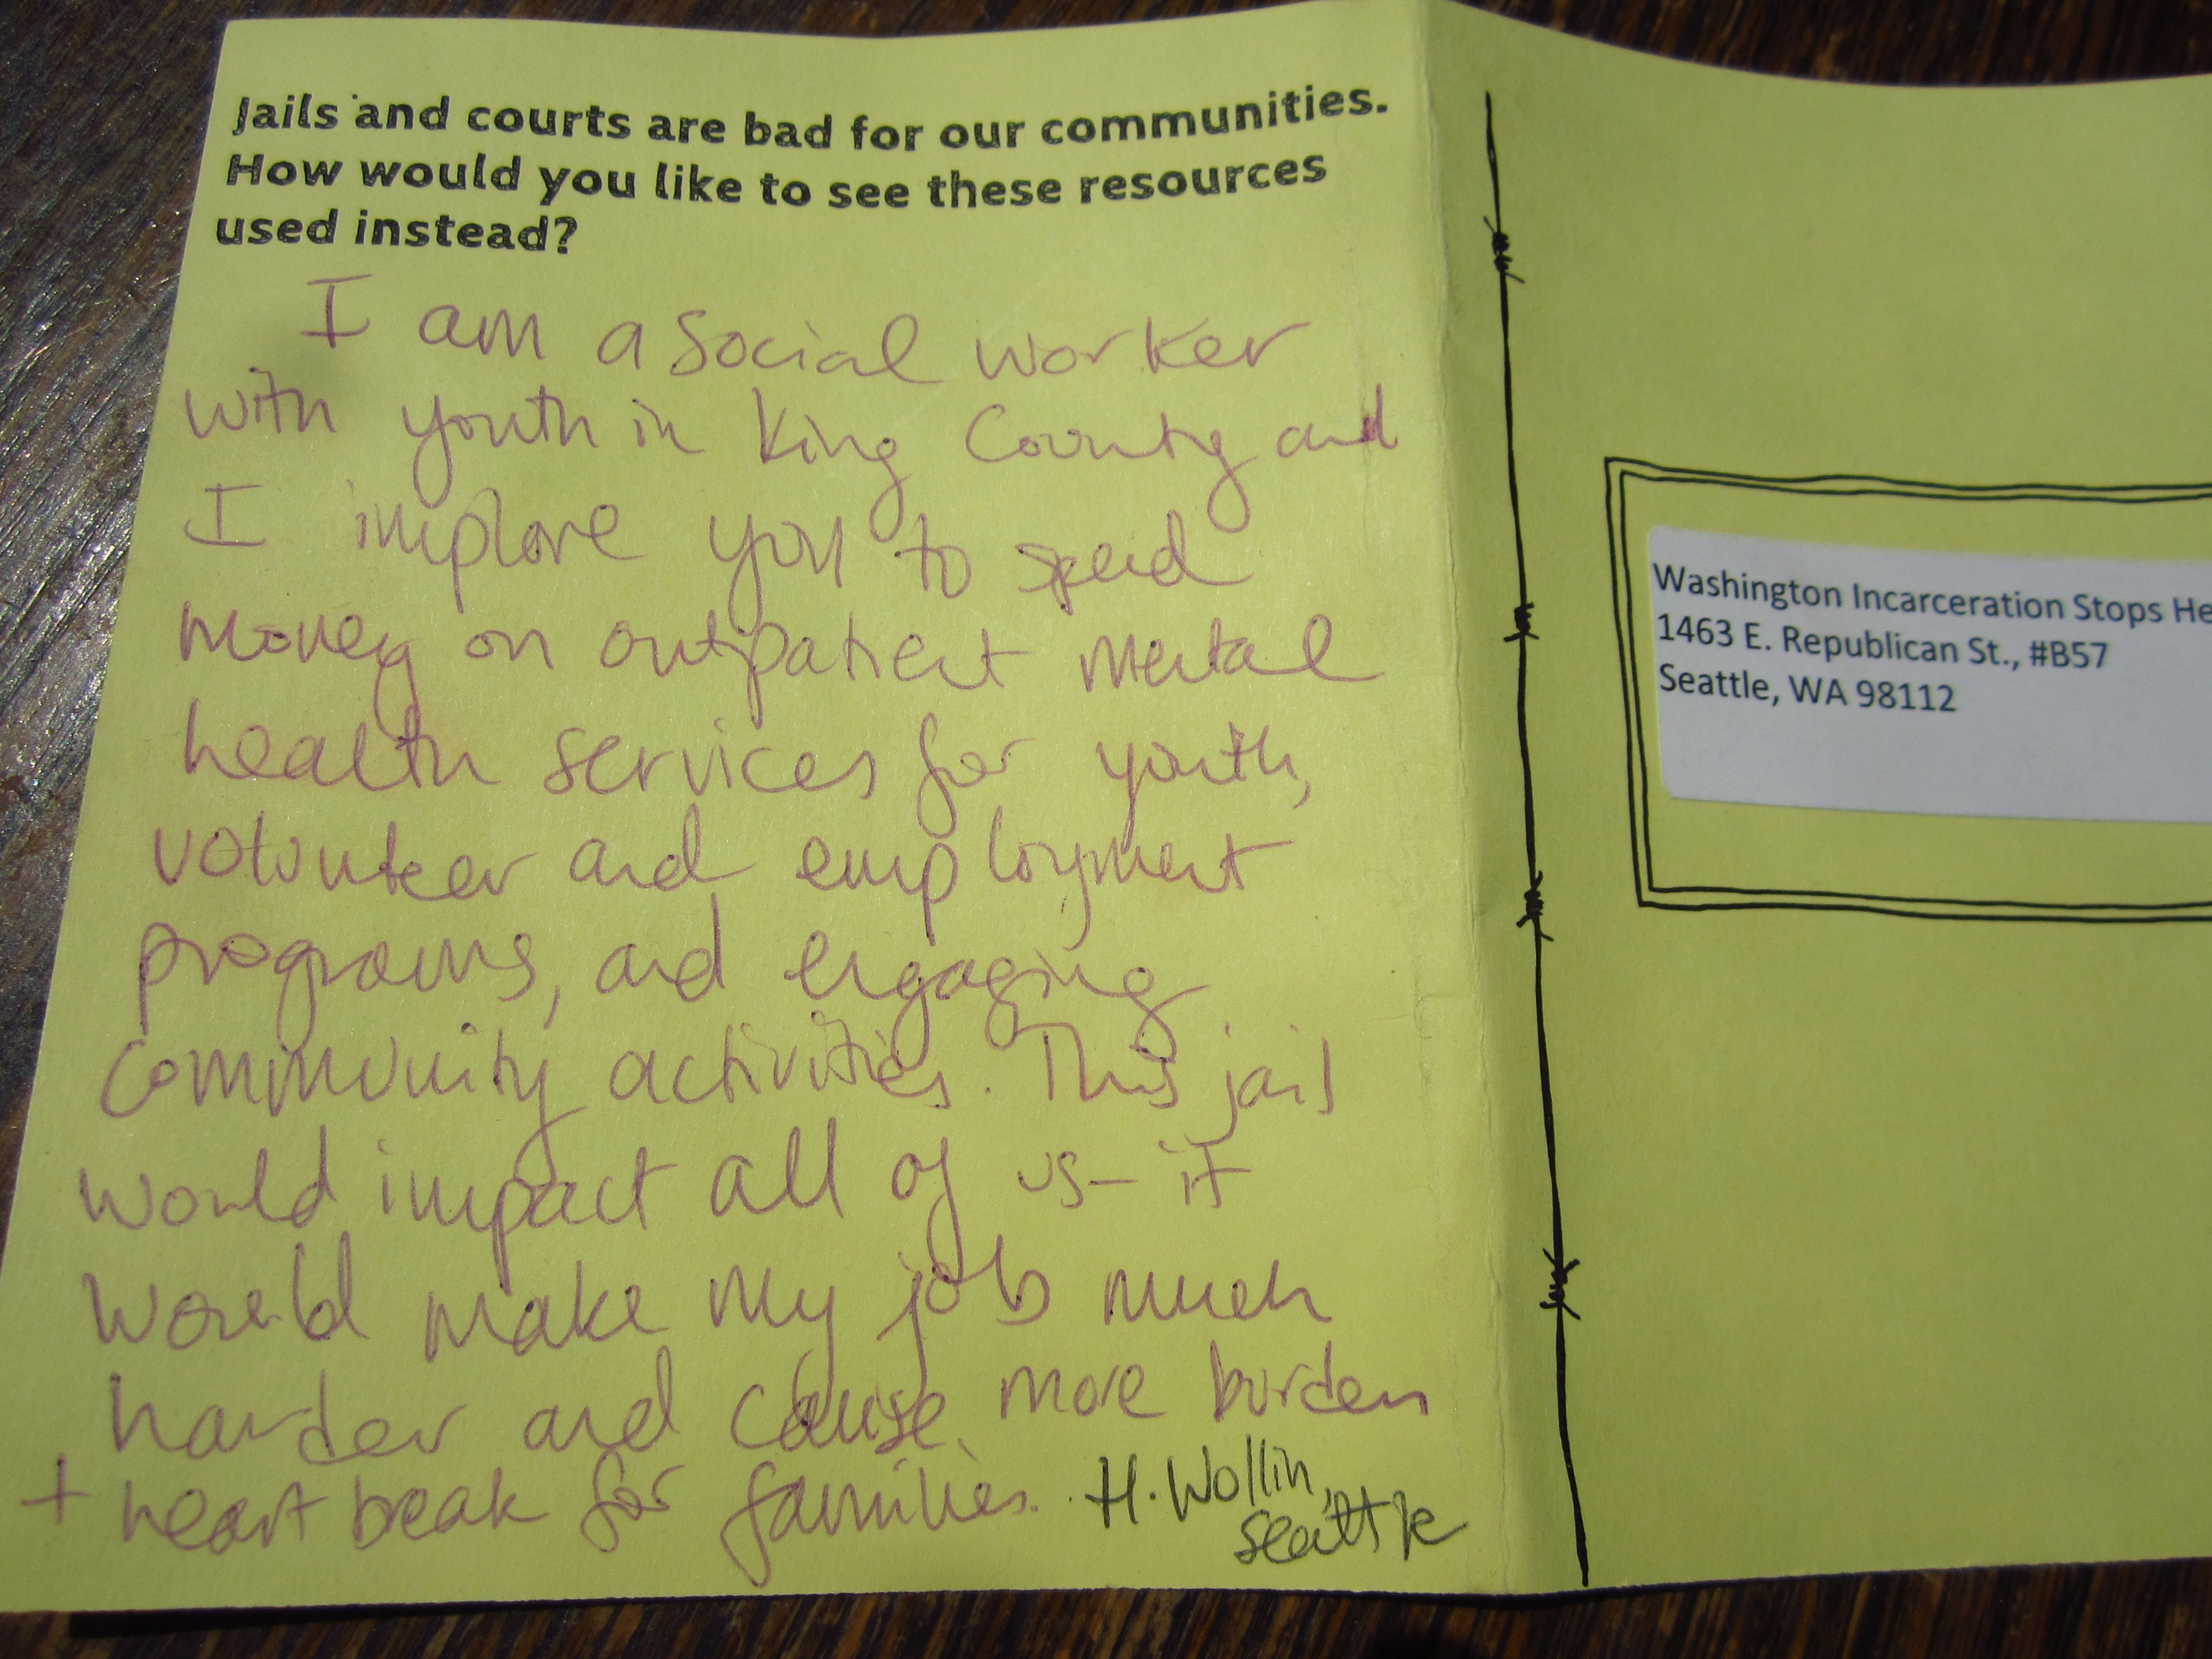 Jails and courts are bad for our communities.
How would you like to see these resources
used instead?
I am a social worker
with youth in King County and
I implore you to spend
money on outpatient mental
health services for youth,
volunteer and employment
programs, and engaging
community activities. This jail
would impact all of us - it
would make my job much
harder and cause more burden
+ heart break for families.
H. Wollin,
Seattle
Washington Incarceration Stops He
1463 E. Republican St., #B57
Seattle, WA 98112